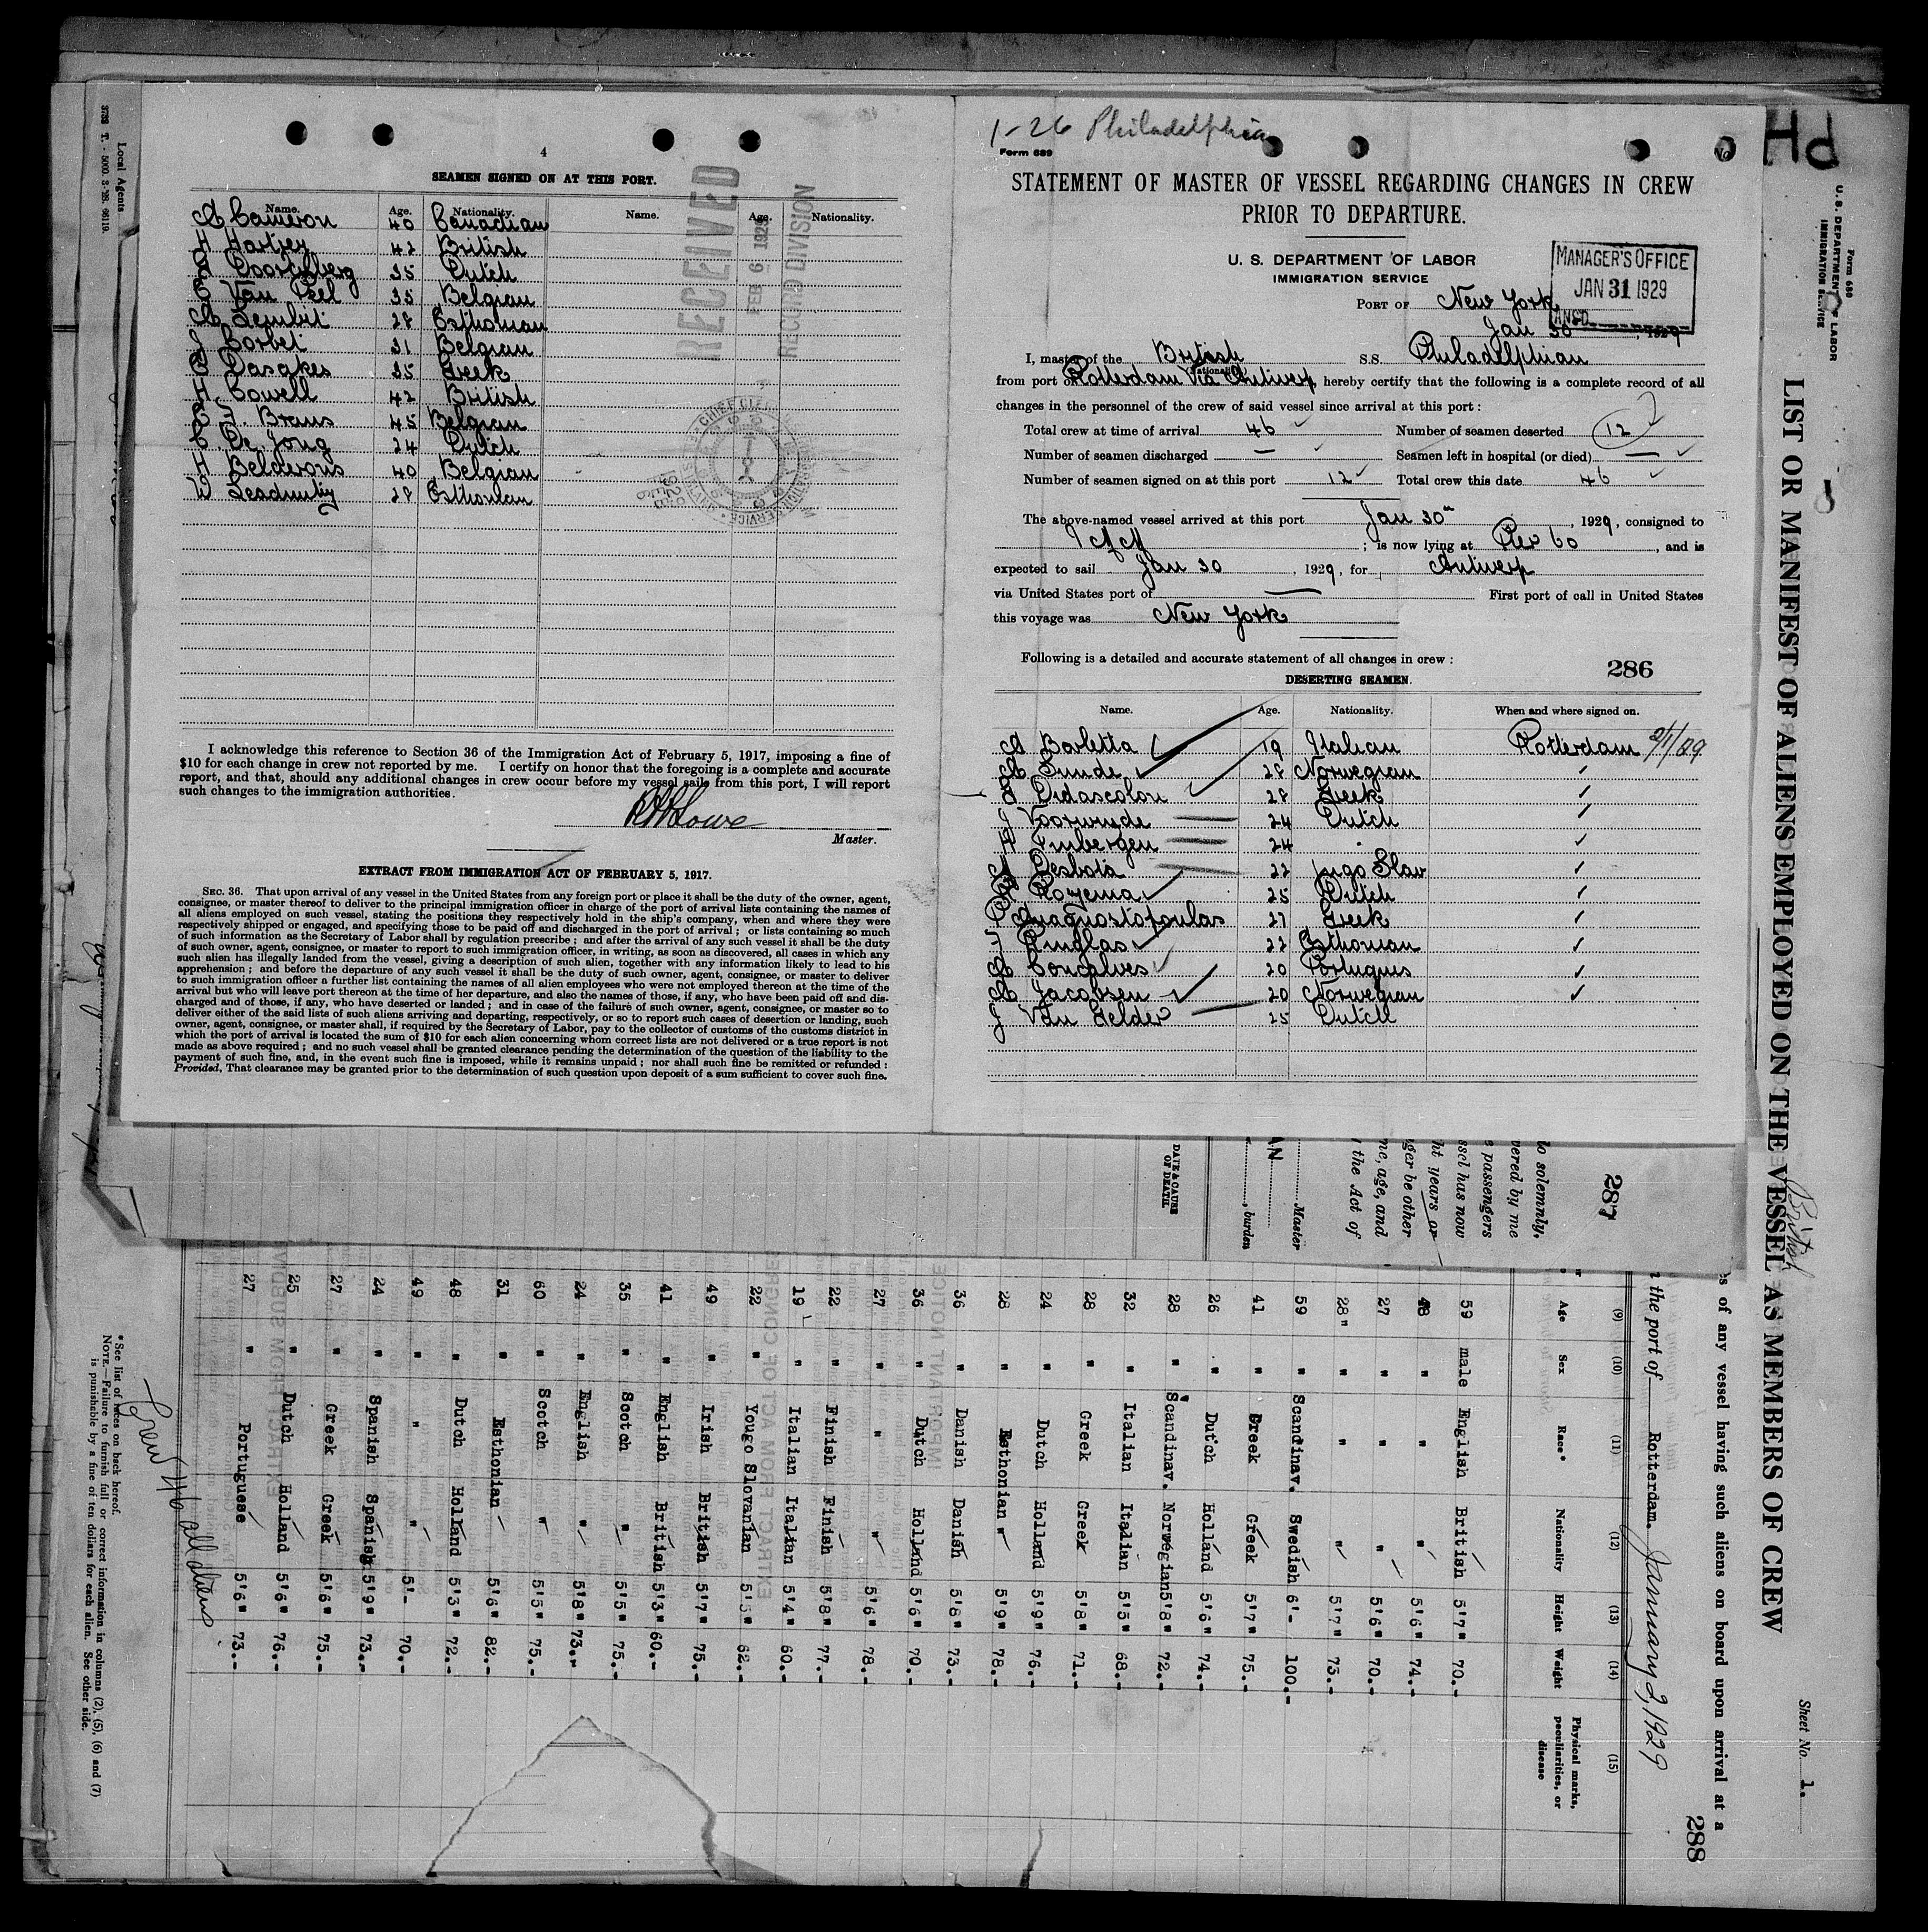 4
SEAMEN SIGNED ON AT THIS PORT.
Name. Age. Nationality. Name. Age. Nationality.
A Cameron 40 Canadian
H Hartley 42 British
35 Dutch
C Van Peel 35 Belgian
A Lembit 28 Esthonian
J Corbet 31 Belgian
Dasakes 35 Greek
H Cowell 42 British
Brans 45 Belgian
C De Jong 24 Dutch
H 40 Belgian
W 28 Esthonian
RECEIVED
FEB 6 1929
RECORD DIVISION
I acknowledge this reference to Section 36 of the Immigration Act of February 5, 1917, imposing a fine of
$10 for each change in crew not reported by me. I certify on honor that the foregoing is a complete and accurate
report, and that, should any additional changes in crew occur before my vessel sails from this port, I will report
such changes to the immigration authorities.
Lowe
Master.
EXTRACT FROM IMMIGRATION ACT OF FEBRUARY 5, 1917.
SEC. 36. That upon arrival of any vessel in the United States from any foreign port or place it shall be the duty of the owner, agent,
consignee, or master thereof to deliver to the principal immigration officer in charge of the port of arrival lists containing the names of
all aliens employed on such vessel, stating the positions they respectively hold in the ship's company, when and where they were
respectively shipped or engaged, and specifying those to be paid off and discharged in the port of arrival; or lists containing so much
of such information as the Secretary of Labor shall by regulation prescribe; and after the arrival of any such vessel it shall be the duty
of such owner, agent, consignee, or master to report to such immigration officer, in writing, as soon as discovered, all cases in which any
such alien has illegally landed from the vessel, giving a description of such alien, together with any information likely to lead to his
apprehension; and before the departure of any such vessel it shall be the duty of such owner, agent, consignee, or master to deliver
to such immigration officer a further list containing the names of all alien employees who were not employed thereon at the time of the
arrival but who will leave port thereon at the time of her departure, and also the names of those, if any, who have been paid off and dis-
charged and of those, if any, who have deserted or landed; and in case of the failure of such owner, agent, consignee, or master so to
deliver either of the said lists of such aliens arriving and departing, respectively, or so to report such cases of desertion or landing, such
owner, agent, consignee, or master shall, if required by the Secretary of Labor, pay to the collector of customs of the customs district in
which the port of arrival is located the sum of $10 for each alien concerning whom correct lists are not delivered or a true report is not
made as above required; and no such vessel shall be granted clearance pending the determination of the question of the liability to the
payment of such fine, and, in the event such fine is imposed, while it remains unpaid; nor shall such fine be remitted or refunded:
Provided, That clearance may be granted prior to the determination of such question upon deposit of a sum sufficient to cover such fine.
1-26 Philadelphia
Form 689
No
STATEMENT OF MASTER OF VESSEL REGARDING CHANGES IN CREW
PRIOR TO DEPARTURE.
U. S. DEPARTMENT OF LABOR
IMMIGRATION SERVICE
MANAGER'S OFFICE
JAN 31 1929
ANSD.
PORT OF New York
Jan 30, 1929
I, master of the British S.S. Philadelphian
(Nationality)
from port of Rotterdam Via Antwerp, hereby certify that the following is a complete record of all
changes in the personnel of the crew of said vessel since arrival at this port:
Total crew at time of arrival 46 Number of seamen deserted 12
Number of seamen discharged — Seamen left in hospital (or died) —
Number of seamen signed on at this port 12 Total crew this date 46
The above-named vessel arrived at this port Jan 30th, 1929, consigned to
; is now lying at Pier 60, and is
expected to sail Jan 30, 1929, for Antwerp
via United States port of — First port of call in United States
this voyage was New York
Following is a detailed and accurate statement of all changes in crew: 286
DESERTING SEAMEN.
Name. Age. Nationality. When and where signed on.
Barletta 19 Italian Rotterdam 2/1/29
A Sunde 28 Norwegian
Didascolou 28 Greek
J Voorwinde 24 Dutch
Tinbergen 24
Desbota 22 Jugo Slav
Rozema 25 Dutch
P Anagnostopoulas 27 Greek
Ringlas 22 Esthonian
A Goncalves 20 Portugues
A Jacobsen 20 Norwegian
J Van Gelder 25 Dutch
PH
Form 680
U. S. DEPARTMENT OF LABOR
IMMIGRATION SERVICE
LIST OR MANIFEST OF ALIENS EMPLOYED ON THE VESSEL AS MEMBERS OF CREW
British
Sheet No. 1.
s of any vessel having such aliens on board upon arrival at a
288
the port of Rotterdam. January 2, 1929
(9) (10) (11) (12) (13) (14) (15)
Age Sex Race* Nationality Height Weight Physical marks, peculiarities, or disease
59 male English British 5'7" 70.-
48 " " " 5'6" 74.-
27 " " " 5'6" 70.-
28 " " " 5'7" 73.-
59 " Scandinav. Swedish 6'- 100.-
41 " Greek Greek 5'7" 75.-
26 " Dutch Holland 5'6" 74.-
28 " Scandinav. Norwegian 5'8" 72.-
32 " Italian Italian 5'5" 68.-
28 " Greek Greek 5'8" 71.-
24 " Dutch Holland 5'9" 76.-
28 " Esthonian " 5'9" 78.-
36 " Danish Danish 5'8" 73.-
36 " Dutch Holland 5'6" 70.-
27 " " " 5'6" 78.-
22 " Finish Finish 5'8" 77.-
19 " Italian Italian 5'4" 60.-
22 " Yougo Slovanian 5'5" 62.-
49 " Irish British 5'7" 75.-
41 " English British 5'3" 60.-
35 " Scotch " 5'5" 75.-
24 " English " 5'8" 73.-
60 " Scotch " 5'5" 75.-
31 " Esthonian 5'6" 82.-
48 " Dutch Holland 5'3" 72.-
49 " " " 5'- 70.-
24 " Spanish Spanish 5'9" 73.-
27 " Greek Greek 5'6" 75.-
25 " Dutch Holland 5'6" 76.-
27 " Portuguese 5'6" 73.-
Crew 46 all aliens
* See list of races on back hereof.
NOTE.—Failure to furnish full or correct information in columns (2), (5), (6) and (7)
is punishable by a fine of ten dollars for each alien. See other side.
287
lo solemnly,
vered by me
e passengers
ssel has now
ht years or
ger be other
me, age, and
the Act of
Master
, burden
AN
DATE & CAUSE
OF DEATH.
Local Agents
3738 T. - 5000. 3-'28. 6619.